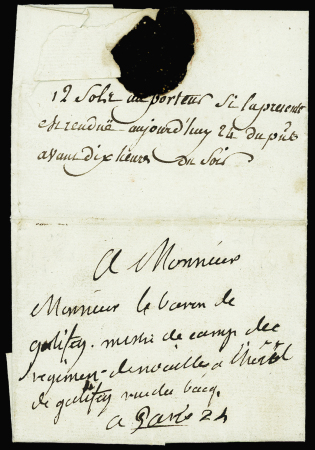 12 Sols au porteur Si la presente
est rendue aujourd'huy 24 du pnt
avant dix heures du Soir
A Monsieur
Monsieur le baron de
galifey. mestre de camp des
regimen - de noailles a l'hôtel
de galifey rue du bacq.
a Paris 24